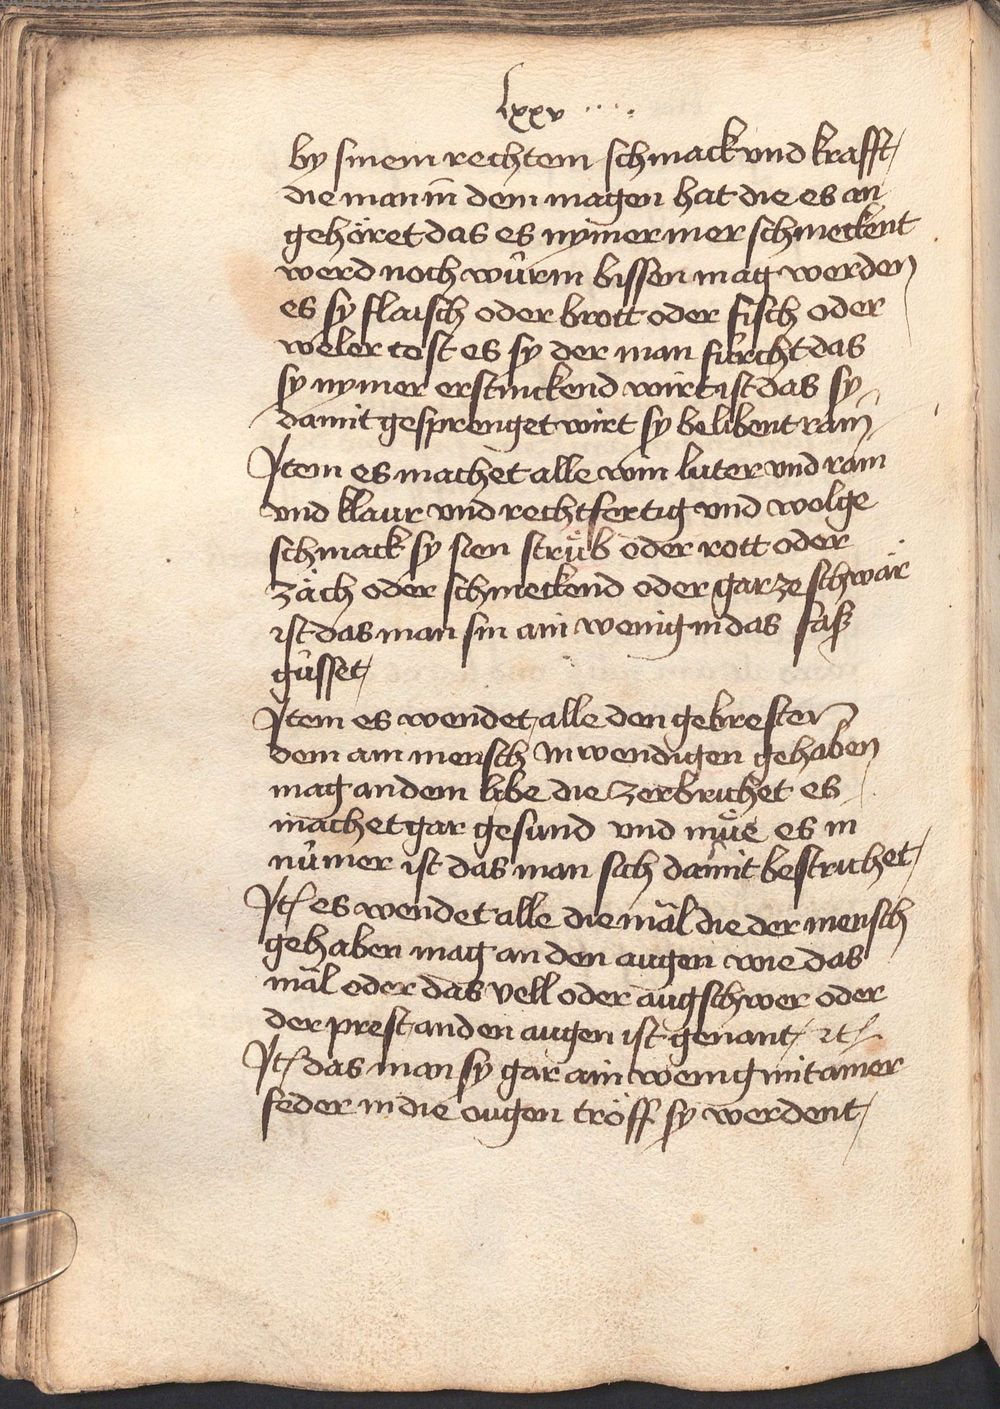 lxxv ....
by sinem rechtem schmack vnd krafft /
die man in̄ dem magen hat die es an
gehöret das es nym̄er mer schmeckent
werd noch wu̇rm bissen mag werden
es sy flaisch oder brott oder fisch oder
weler cost es sy der man furcht das
sy nymer erstinckend wirt ist das sy
damit gesprenget wirt sy belibent rain̄
Jtem es machet alle win luter vnd rain
vnd klaur vnd rechtfertig vnd wolge
schmack sy sien struͤb oder rott oder
zäch oder schmeckend oder gar ze schwär
ist das man sin ain wenig in das fasß
gu̇sset /
Jtem es wendet / alle den gebresten
dem ain mensch Inwendigen gehaben
mag an dem libe die zerbrichet es
machet gar gesund vnd muͤe es in
nu̇mer ist das man sich damit bestrichet /
Jt͛ es wendet alle die mäl die der mensch
gehaben mag an den augen wie das
mäl oder das vell oder augschwer oder
der prest / an den augen ist genant / ⁊c͛
Jt͛ das man sy gar ain wenig mit ainer
feder in die augen tröff sy werdent /